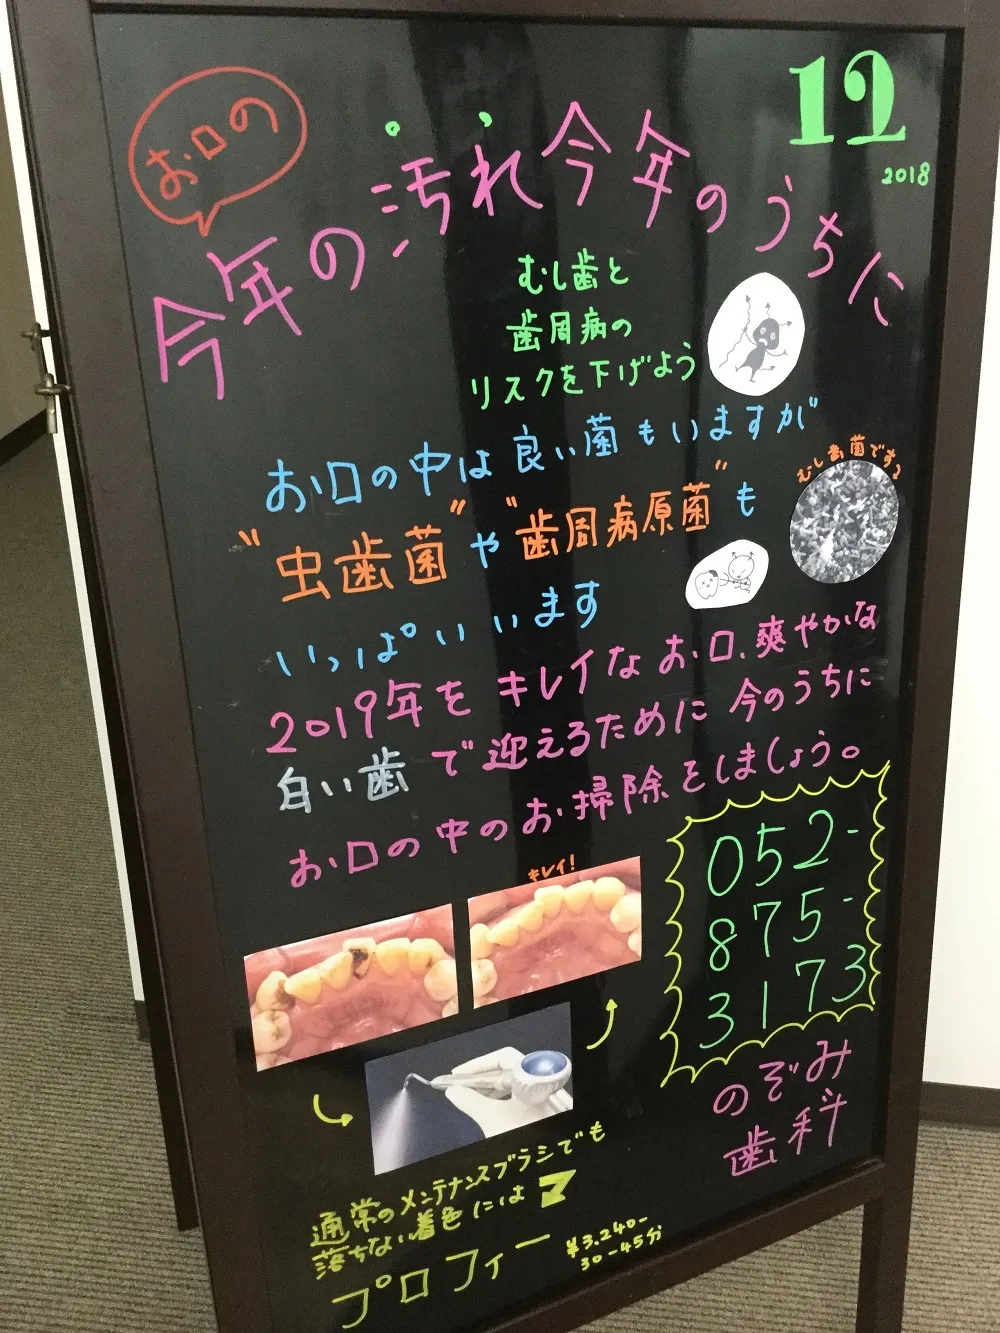 12
2018
お口の
今年の汚れ今年のうちに
むし歯と
歯周病の
リスクを下げよう
お口の中は良い菌もいますが
"虫歯菌"や"歯周病原菌"も
いっぱいいます
むし歯菌です
2019年をキレイなお口、爽やかな
白い歯で迎えるために今のうちに
お口の中のお掃除をしましょう。
キレイ!
052-
875-
3173
のぞみ
歯科
通常のメンテナンスブラシでも
落ちない着色には
プロフィー
¥3.240-
30-45分